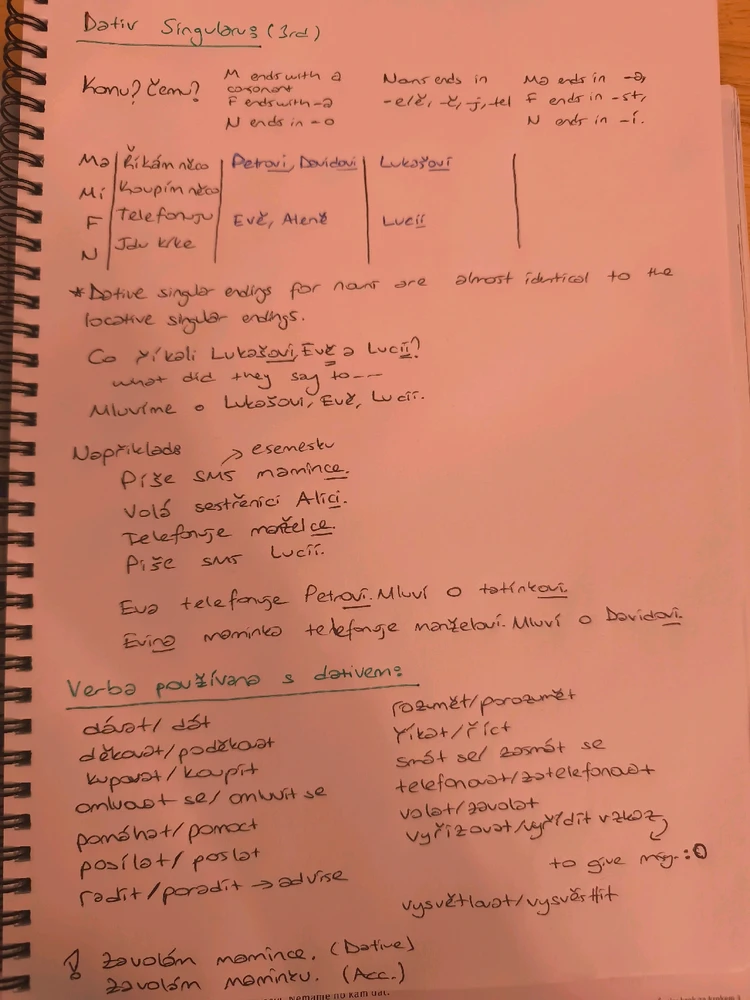 Dativ Singularu: (3rd)
Komu? čemu?
M ends with a
consonant
F ends with -a
N ends in -o
Nouns ends in
-e/ě, -č, -j, -tel
Ma ends in -a,
F ends in -st,
N ends in -í.
Ma Říkám něco Petrovi, Davidovi Lukašovi
Mi Koupím něco
F Telefonuju Evě, Aleně Lucii
N Jdu k/ke
* Dative singular endings for nouns are almost identical to the
locative singular endings.
Co říkali Lukašovi, Evě a Lucii?
what did they say to ---
Mluvíme o Lukašovi, Evě, Lucii.
Například: → esemesku
Píše SMS mamince.
Volá sestřenici Alici.
Telefonuje manželce.
Píše SMS Lucii.
Eva telefonuje Petrovi. Mluví o tatínkovi.
Evina maminka telefonuje manželovi. Mluví o Davidovi.
Verba používana s dativem:
dávat/ dát
děkovat/poděkovat
kupovat/koupit
omluvat se/ omluvit se
pomáhat/pomoct
posílat/ poslat
radit/poradit → advise
rozumět/porozumět
říkat/říct
smát se/ zasmát se
telefonovat/zatelefonovat
volat/zavolat
vyřizovat/vyřídit vzkaz
to give msg. :O
vysvětlovat/vysvětlit
! zavolám mamince. (Dative)
zavolám maminku. (Acc.)